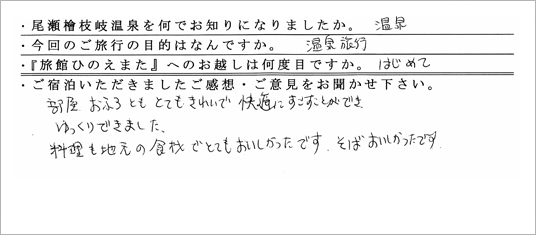 ・尾瀬檜枝岐温泉を何でお知りになりましたか。 温泉
・今回のご旅行の目的はなんですか。 温泉旅行
・『旅館ひのえまた』へのお越しは何度目ですか。 はじめて
・ご宿泊いただきましたご感想・ご意見をお聞かせ下さい。
部屋 おふろ とも とてもきれいで 快適にすごすことができ
ゆっくりできました、
料理も地元の食材でとてもおいしかったです. そばおいしかったです.